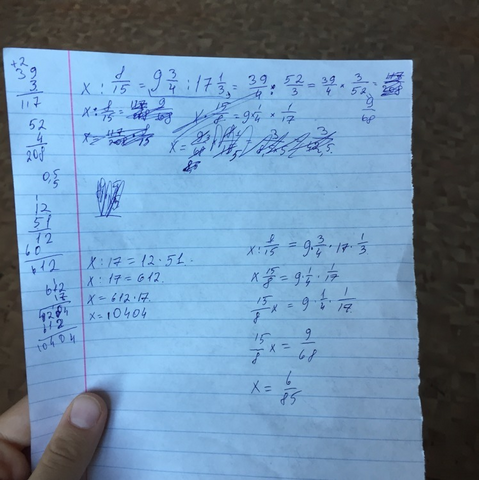 +2
39
3
117
52
4
208
0,5
5
12
51
12
60
612
612
17
4284
612
10404
x : 8/15 = 9 3/4 : 17 1/3 = 39/4 : 52/3 = 39/4 × 3/52 =
9/68
x : 8/15 =
x · 15/8 = 9 · 1/4 × 1/17
x =
x = 9/68
85
x : 17 = 12 · 51
x : 17 = 612
x = 612 · 17
x = 10404
x : 8/15 = 9 · 3/4 · 17 · 1/3
x 15/8 = 9 · 1/4 · 1/17
15/8 x = 9 · 1/4 · 1/17
15/8 x = 9/68
x = 6/85